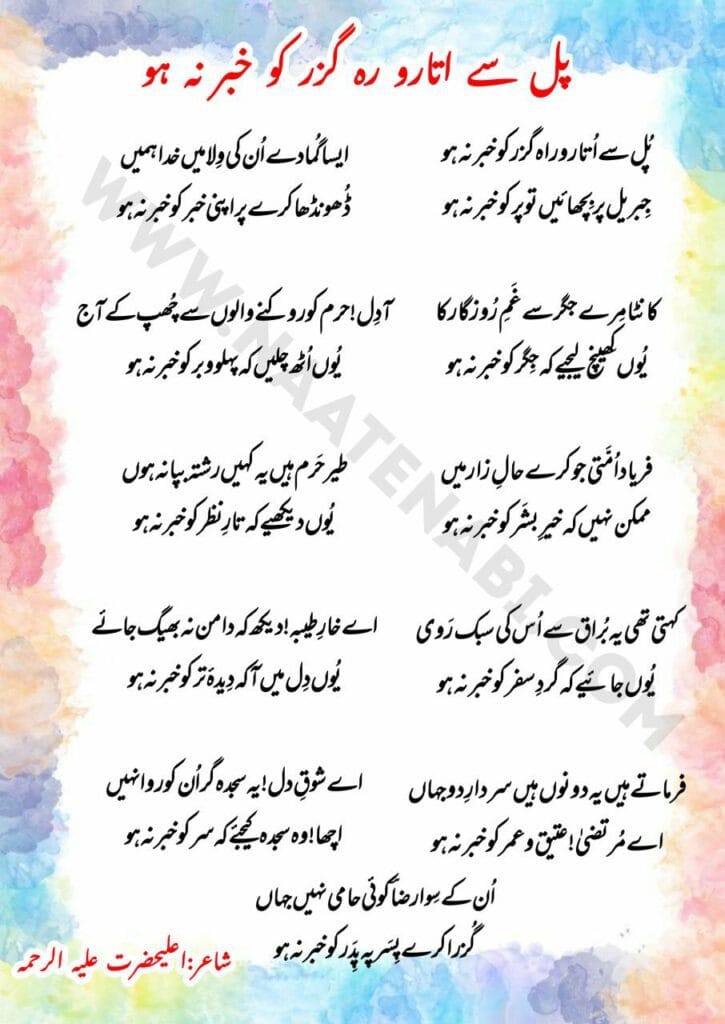 پل سے اتارو رہ گزر کو خبر نہ ہو
پُل سے اُتارو راہ گزر کو خبر نہ ہو
جِبریل پر بِچھائیں تو پر کو خبر نہ ہو
ایسا گُما دے اُن کی وِلا میں خدا ہمیں
ڈُھونڈھا کرے پر اپنی خبر کو خبر نہ ہو
کانٹا مِرے جگر سے غَمِ رُوزگار کا
یُوں کھینچ لیجیے کہ جِگر کو خبر نہ ہو
آ دِل! حرم کو روکنے والوں سے چُھپ کے آج
یُوں اُٹھ چلیں کہ پہلو و بر کو خبر نہ ہو
فریاد اُمَّتی جو کرے حالِ زار میں
ممکن نہیں کہ خیرِ بشَر کو خبر نہ ہو
طیرِ حَرم ہیں یہ کہیں رشتہ بپا نہ ہوں
یُوں دیکھیے کہ تارِ نظر کو خبر نہ ہو
کہتی تھی یہ بُراق سے اُس کی سبک رَوی
یُوں جائیے کہ گردِ سفر کو خبر نہ ہو
اے خارِ طیبہ! دیکھ کہ دامن نہ بھیگ جائے
یُوں دِل میں آ کہ دِیدۂ تر کو خبر نہ ہو
فرماتے ہیں یہ دونوں ہیں سردارِ دو جہاں
اے مُرتضیٰ! عتیق و عمر کو خبر نہ ہو
اے شوقِ دل! یہ سجدہ گر اُن کو روا نہیں
اچھا! وہ سجدہ کیجئے کہ سر کو خبر نہ ہو
اُن کے سِوا رضاؔ کوئی حامی نہیں جہاں
گُزرا کرے پِسَر پہ پِدَر کو خبر نہ ہو
شاعر:اعلیحضرت علیہ الرحمہ
WWW.NAATENABI.COM